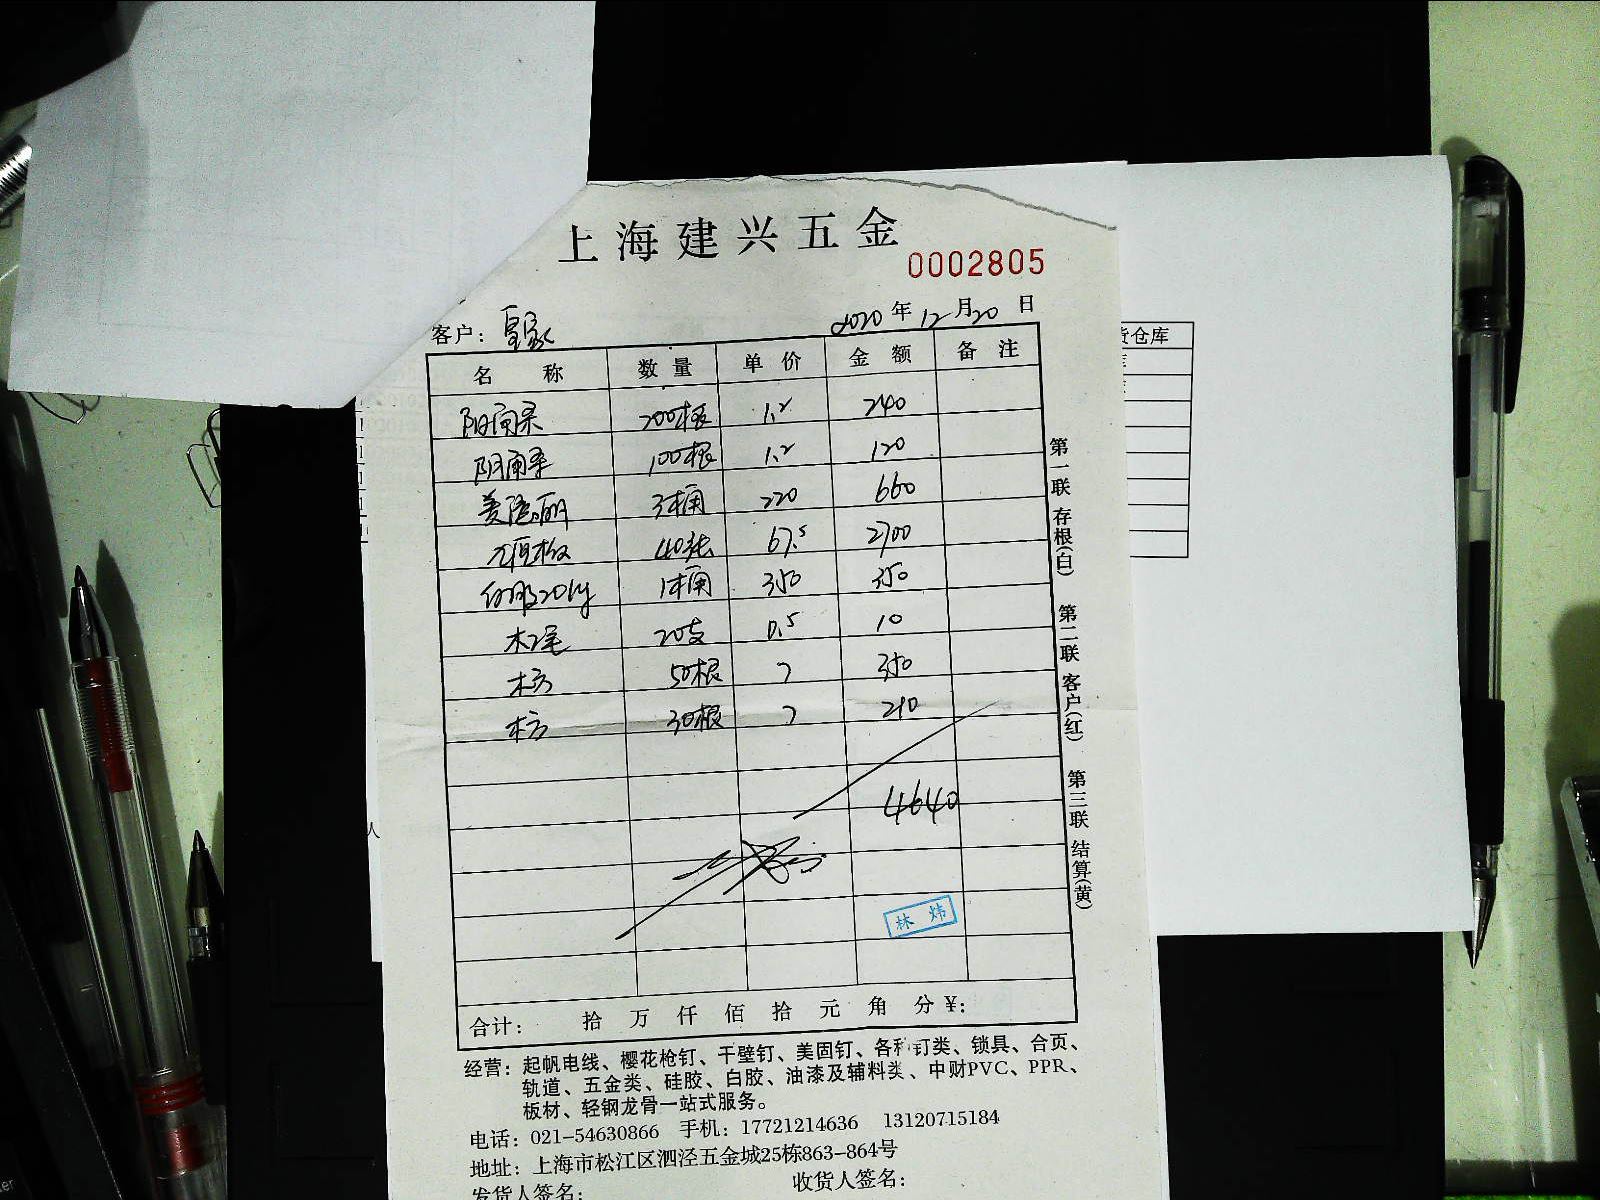 上海建兴五金
0002805
客户：皇家 2020年12月20日
名 称 数 量 单 价 金 额 备 注
阳角条 200根 1.2 240
阴角条 100根 1.2 120
美隐丽 3桶 220 660
石膏板 40张 67.5 2700
白胶20kg 1桶 350 350
木工尾 20支 0.5 10
木方 50根 7 350
木方 30根 7 210
4640
林炜
合计： 拾 万 仟 佰 拾 元 角 分 ¥：
第一联 存根(白) 第二联 客户(红) 第三联 结算(黄)
经营：起帆电线、樱花枪钉、干壁钉、美固钉、各种钉类、锁具、合页、
轨道、五金类、硅胶、白胶、油漆及辅料类、中财PVC、PPR、
板材、轻钢龙骨一站式服务。
电话：021-54630866 手机：17721214636 13120715184
地址：上海市松江区泗泾五金城25栋863-864号
发货人签名： 收货人签名：
货仓库
人